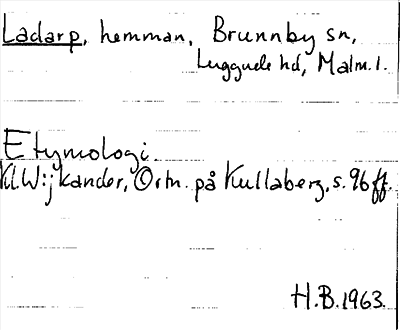 Ladarp, hemman, Brunnby sn,
Luggude hd, Malm. l.
Etymologi.
K.W:jkander, Ortn. på Kullaberg, s. 96 ff.
H.B. 1963.